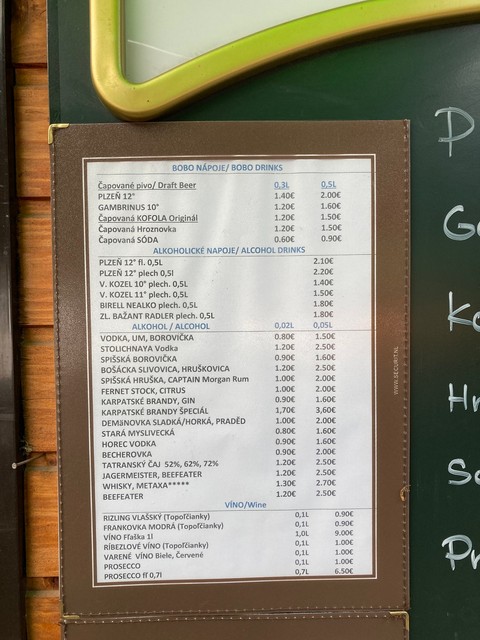 BOBO NÁPOJE/ BOBO DRINKS
Čapované pivo/ Draft Beer 0,3L 0,5L
PLZEŇ 12° 1.40€ 2.00€
GAMBRINUS 10° 1.20€ 1.60€
Čapovaná KOFOLA Originál 1.20€ 1.50€
Čapovaná Hroznovka 1.20€ 1.50€
Čapovaná SÓDA 0.60€ 0.90€
ALKOHOLICKÉ NAPOJE/ ALCOHOL DRINKS
PLZEŇ 12° fl. 0,5L 2.10€
PLZEŇ 12° plech 0,5l 2.20€
V. KOZEL 10° plech. 0,5L 1.40€
V. KOZEL 11° plech. 0,5L 1.50€
BIRELL NEALKO plech. 0,5L 1.80€
ZL. BAŽANT RADLER plech. 0,5L 1.80€
ALKOHOL / ALCOHOL 0,02L 0,05L
VODKA, UM, BOROVIČKA 0.80€ 1.50€
STOLICHNAYA Vodka 1.20€ 2.50€
SPIŠSKÁ BOROVIČKA 0.90€ 1.60€
BOŠÁCKA SLIVOVICA, HRUŠKOVICA 1.20€ 2.50€
SPIŠSKÁ HRUŠKA, CAPTAIN Morgan Rum 1.00€ 2.00€
FERNET STOCK, CITRUS 1.00€ 2.00€
KARPATSKÉ BRANDY, GIN 0.90€ 1.60€
KARPATSKÉ BRANDY ŠPECIÁL 1,70€ 3,60€
DEMäNOVKA SLADKÁ/HORKÁ, PRADĚD 1.00€ 2.00€
STARÁ MYSLIVECKÁ 0.80€ 1.60€
HOREC VODKA 0.90€ 1.60€
BECHEROVKA 0.90€ 2.00€
TATRANSKÝ ČAJ 52%, 62%, 72% 1.20€ 2.50€
JAGERMEISTER, BEEFEATER 1.20€ 2.50€
WHISKY, METAXA***** 1.30€ 2.70€
BEEFEATER 1.20€ 2.50€
VÍNO/Wine
RIZLING VLAŠSKÝ (Topoľčianky) 0,1L 0.90€
FRANKOVKA MODRÁ (Topoľčianky) 0,1L 0.90€
VÍNO Fľaška 1l 1,0L 9.00€
RÍBEZĽOVÉ VÍNO (Topoľčianky) 0,1L 1.00€
VARENÉ VÍNO Biele, Červené 0,1L 1.00€
PROSECCO 0,1L 1.00€
PROSECCO fľ 0,7l 0,7L 6.50€
WWW.SECURIT.NL